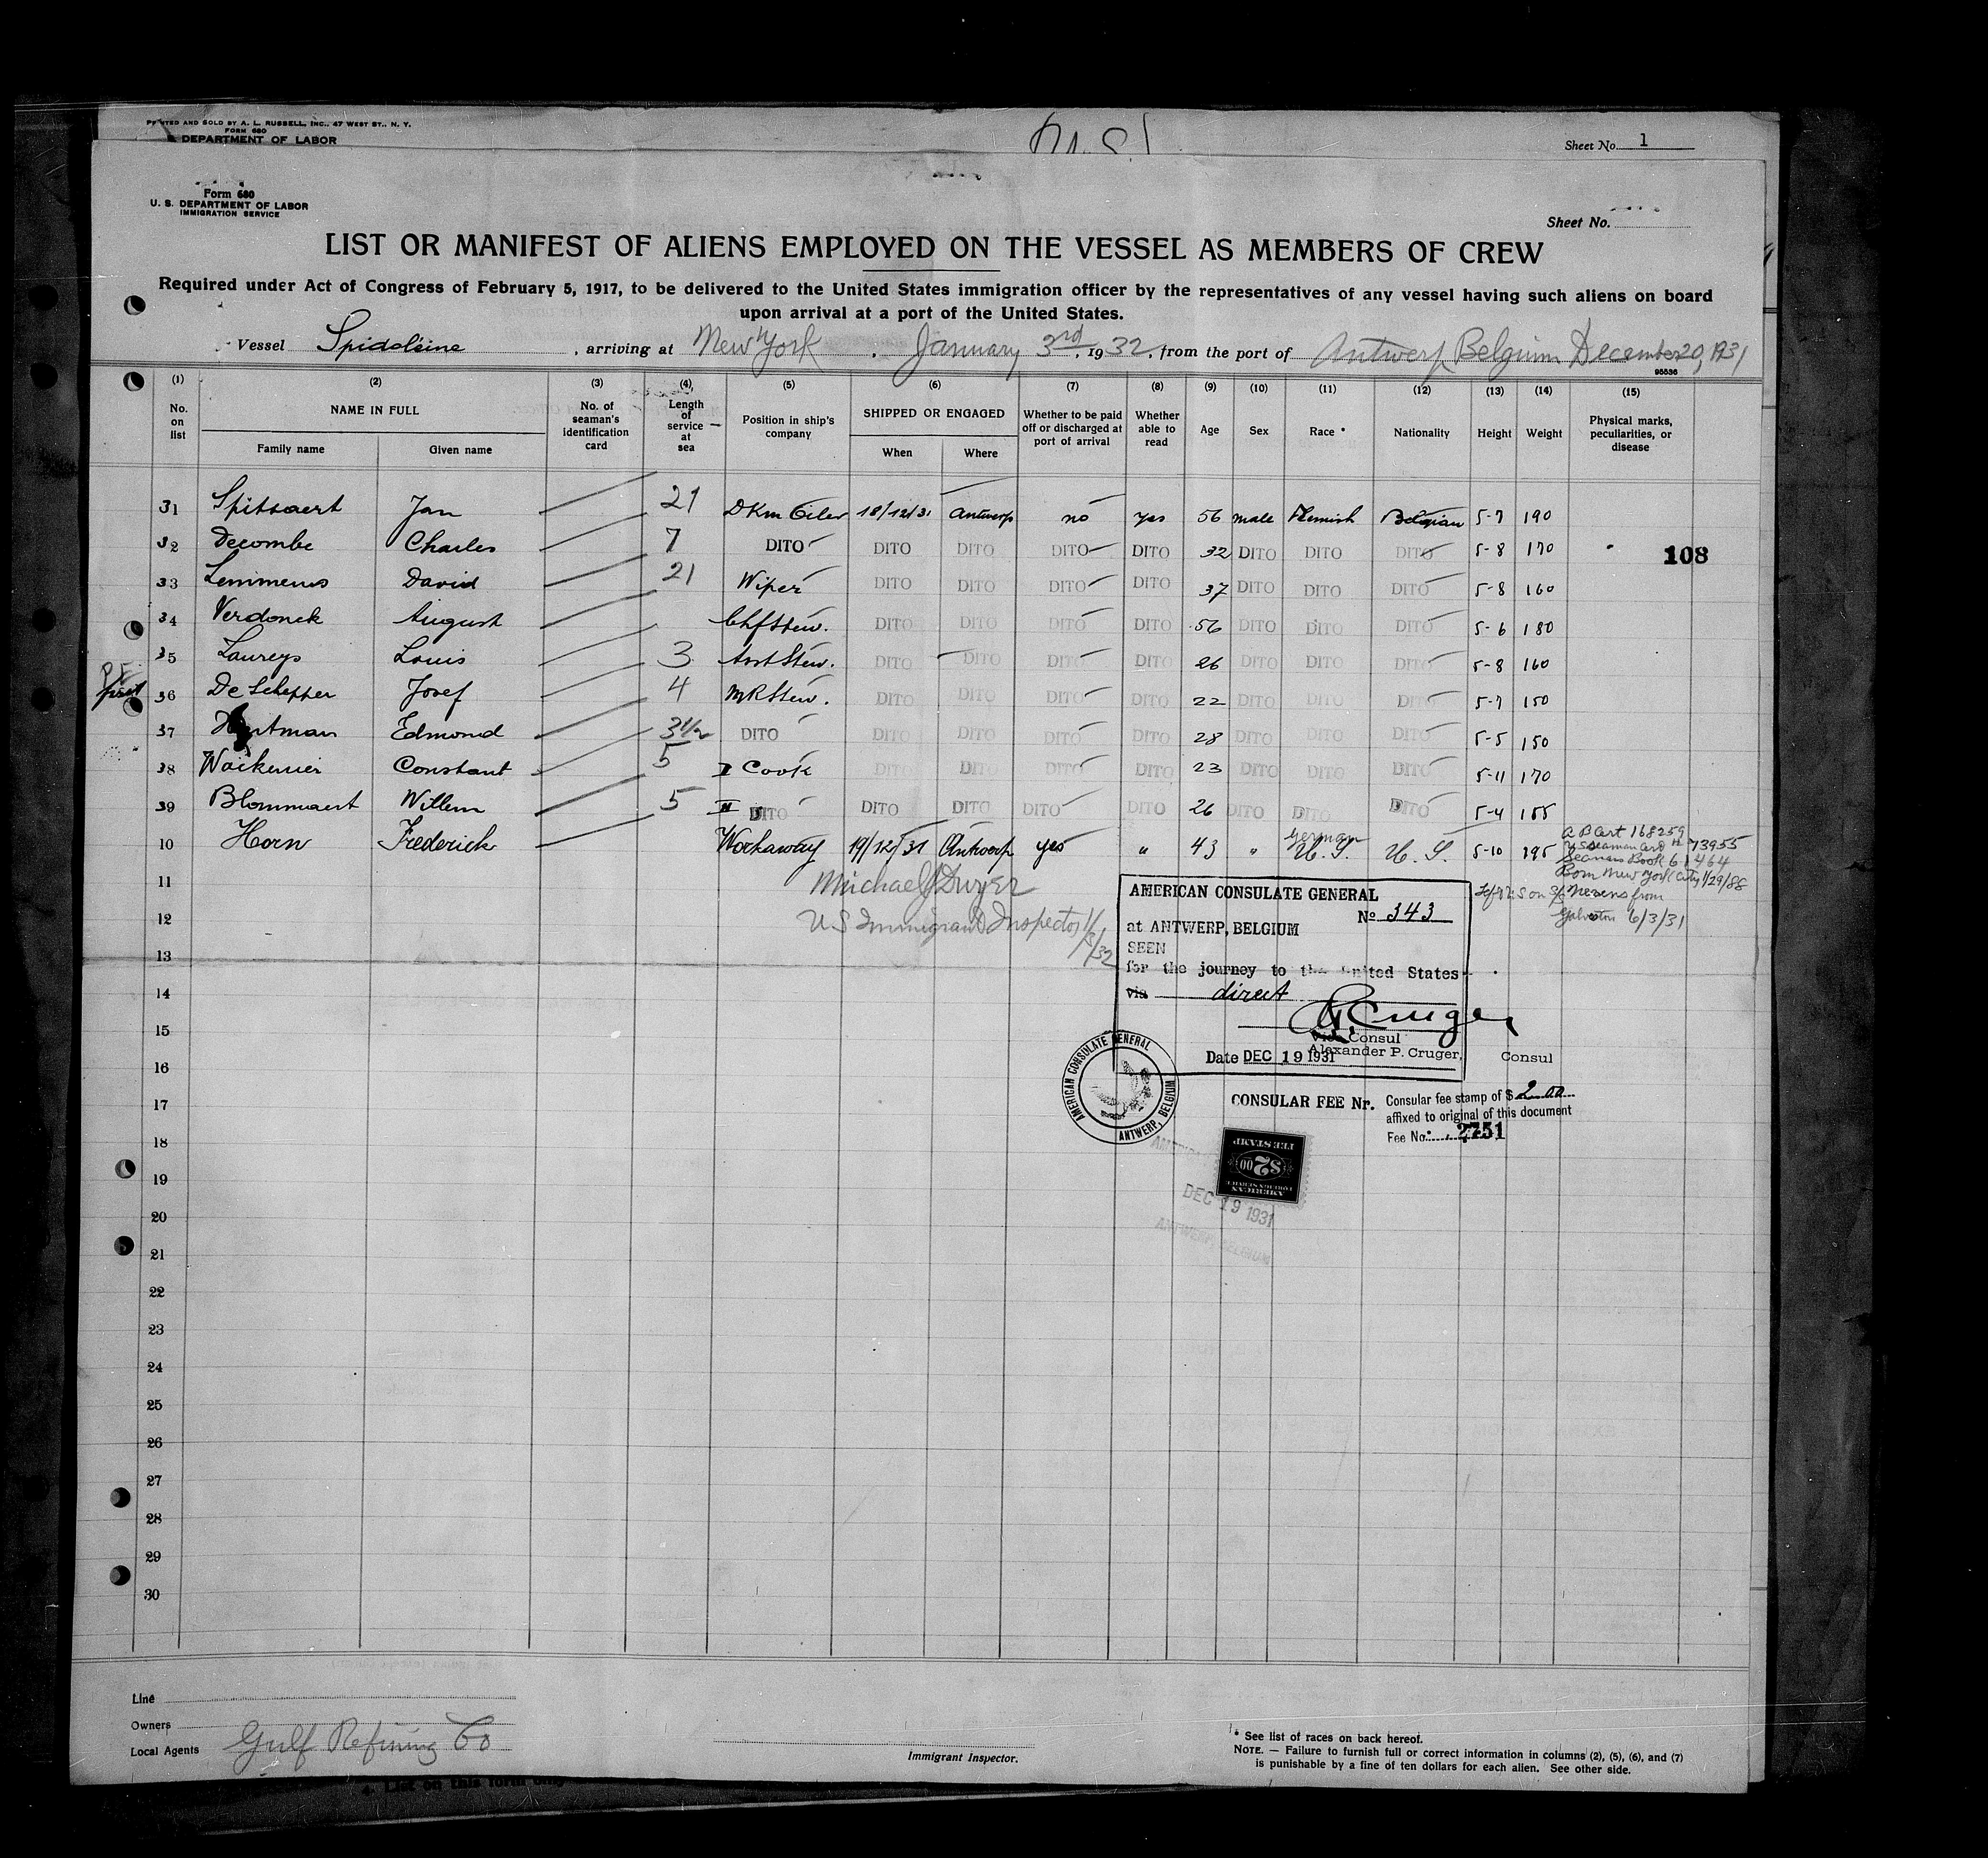 PRINTED AND SOLD BY A. L. RUSSELL, INC., 47 WEST ST., N. Y.
FORM 680
DEPARTMENT OF LABOR
Sheet No. 1
Form 680
U. S. DEPARTMENT OF LABOR
IMMIGRATION SERVICE
Sheet No.
LIST OR MANIFEST OF ALIENS EMPLOYED ON THE VESSEL AS MEMBERS OF CREW
Required under Act of Congress of February 5, 1917, to be delivered to the United States immigration officer by the representatives of any vessel having such aliens on board
upon arrival at a port of the United States.
Vessel Spidoleine, arriving at New York, January 3rd, 1932, from the port of Antwerp Belgium December 20, 1931
95536
(1) (2) (3) (4) (5) (6) (7) (8) (9) (10) (11) (12) (13) (14) (15)
No. on list NAME IN FULL Family name Given name No. of seaman's identification card Length of service at sea Position in ship's company SHIPPED OR ENGAGED When Where Whether to be paid off or discharged at port of arrival Whether able to read Age Sex Race * Nationality Height Weight Physical marks, peculiarities, or disease
31 Spitsaert Jan 21 DKm Oiler 18/12/31 Antwerp no yes 56 male Flemish Belgian 5-7 190
32 Decombe Charles 7 DITO DITO DITO DITO DITO 32 DITO DITO DITO 5-8 170
108
33 Lemmens David 21 Wiper DITO DITO DITO DITO 37 DITO DITO DITO 5-8 160
34 Verdonck August Chf Stew. DITO DITO DITO DITO 56 DITO DITO DITO 5-6 180
35 Laureys Louis 3 Asst Stew. DITO DITO DITO DITO 26 DITO DITO DITO 5-8 160
36 De Schepper Josef 4 MR Stew. DITO DITO DITO DITO 22 DITO DITO DITO 5-7 150
37 Edmond 3 1/2 DITO DITO DITO DITO DITO 28 DITO DITO DITO 5-5 150
38 Constant 5 I Cook DITO DITO DITO DITO 23 DITO DITO DITO 5-11 170
39 Blommaert Willem 5 II DITO DITO DITO DITO DITO 26 DITO DITO DITO 5-4 155
10 Horn Frederick Workaway 19/12/31 Antwerp yes " 43 " German U. S. U. S. 5-10 195
A B Cert 168259
US Seaman Card 73955
Seamans Book 61464
Born New York City 1/29/88
Left U.S on S/S Nevens from
Galveston 6/3/31
11
Michael J Dwyer
12
US Immigrant Inspector 1/3/32
13
14
15
16
17
18
19
20
21
22
23
24
25
26
27
28
29
30
AMERICAN CONSULATE GENERAL
No 343
at ANTWERP, BELGIUM
SEEN
for the journey to the United States
via direct
A P Cruger
Vice Consul
Alexander P. Cruger, Consul
Date DEC 19 1931
AMERICAN CONSULATE GENERAL
ANTWERP, BELGIUM
CONSULAR FEE Nr.
Consular fee stamp of $ 2.00
affixed to original of this document
Fee No. 2751
AMERICAN
FOREIGN SERVICE
$2 00
FEE STAMP
DEC 19 1931
ANTWERP, BELGIUM
Line
Owners
Local Agents Gulf Refining Co
Immigrant Inspector.
* See list of races on back hereof.
NOTE. — Failure to furnish full or correct information in columns (2), (5), (6), and (7)
is punishable by a fine of ten dollars for each alien. See other side.